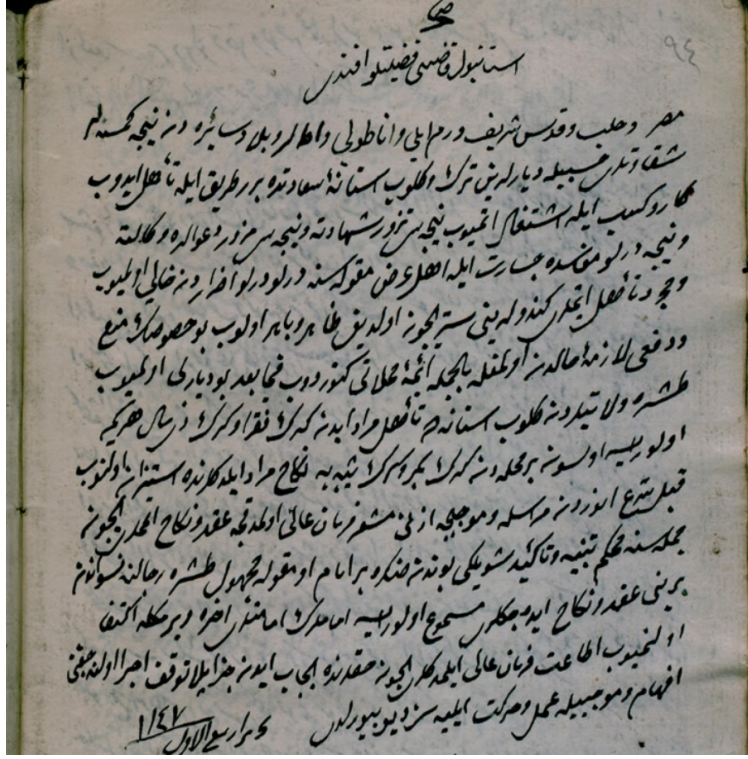 صح
٩٤
استانبول قاضيسى فضيلتلو افندى
مصر و حلب و قدس شريف و روم ايلى و اناطولى و اطهلر و بلاد سائره دن نيجه كمسنه لر
شقاوتلرى حسبيله ديارلرين ترك و كلوب استانهٔ سعادتده بر طريق ايله تأهل ايدوب
كار و كسب ايله اشتغال ايتميوب نيجه سى تزوير شهادته و نيجه سى مزور دعوالره وكالته
و نيجه درلو مفسده يه جسارت ايله اهل عرض مقوله سنه درلو درلو اضراردن خالى اولميوب
و مجرد تأهل ايتملرى كندولرينى ستر ايچون اولديغى ظاهر و باهر اولوب بو خصوصك منع
و دفعى لازمهٔ حالدن اولمغله بالجمله ائمهٔ محلاتى كتوردوب فيما بعد بو ديارلى اولميوب
طشره ولايتلردن كلوب استانه ده تأهل مراد ايدن كرك فقرا و كرك ذى مال هر كيم
اولور ايسه اولسون بر محله دن كرك بكر و كرك ثيبه يه نكاح مراد ايلدكلرنده استيذان اولنوب
قبل شرع انوردن مراسله و موجبنجه اذنى مشعر فرمان عالى اولمدقجه عقد و نكاح ايتمامك ايچون
جمله سنه محكم تنبيه و تأكيد شويلكه بوندن صكره بر امام او مقوله مجهول طشره رجالنه نسواندن
برينى عقد و نكاح ايده جكلرى مسموع اولور ايسه امامك امامتى اخره ويرمكله اكتفا
اولنميوب اطاعت فرمان عالى ايلمدكلرى ايچون حقلرنده ايجاب ايدن جزا بلا توقف اجرا اولنه جغنى
افهام و موجبيله عمل و حركت ايليه سز ديو بيورلدى
فى غرة ربيع الاول ١١٤٧